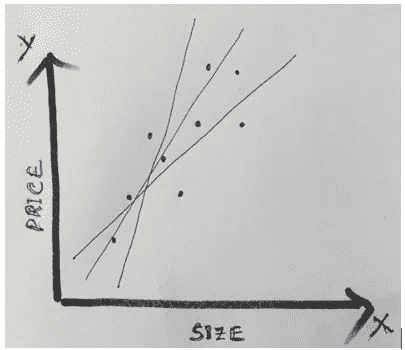 Y
PRICE
SIZE
X